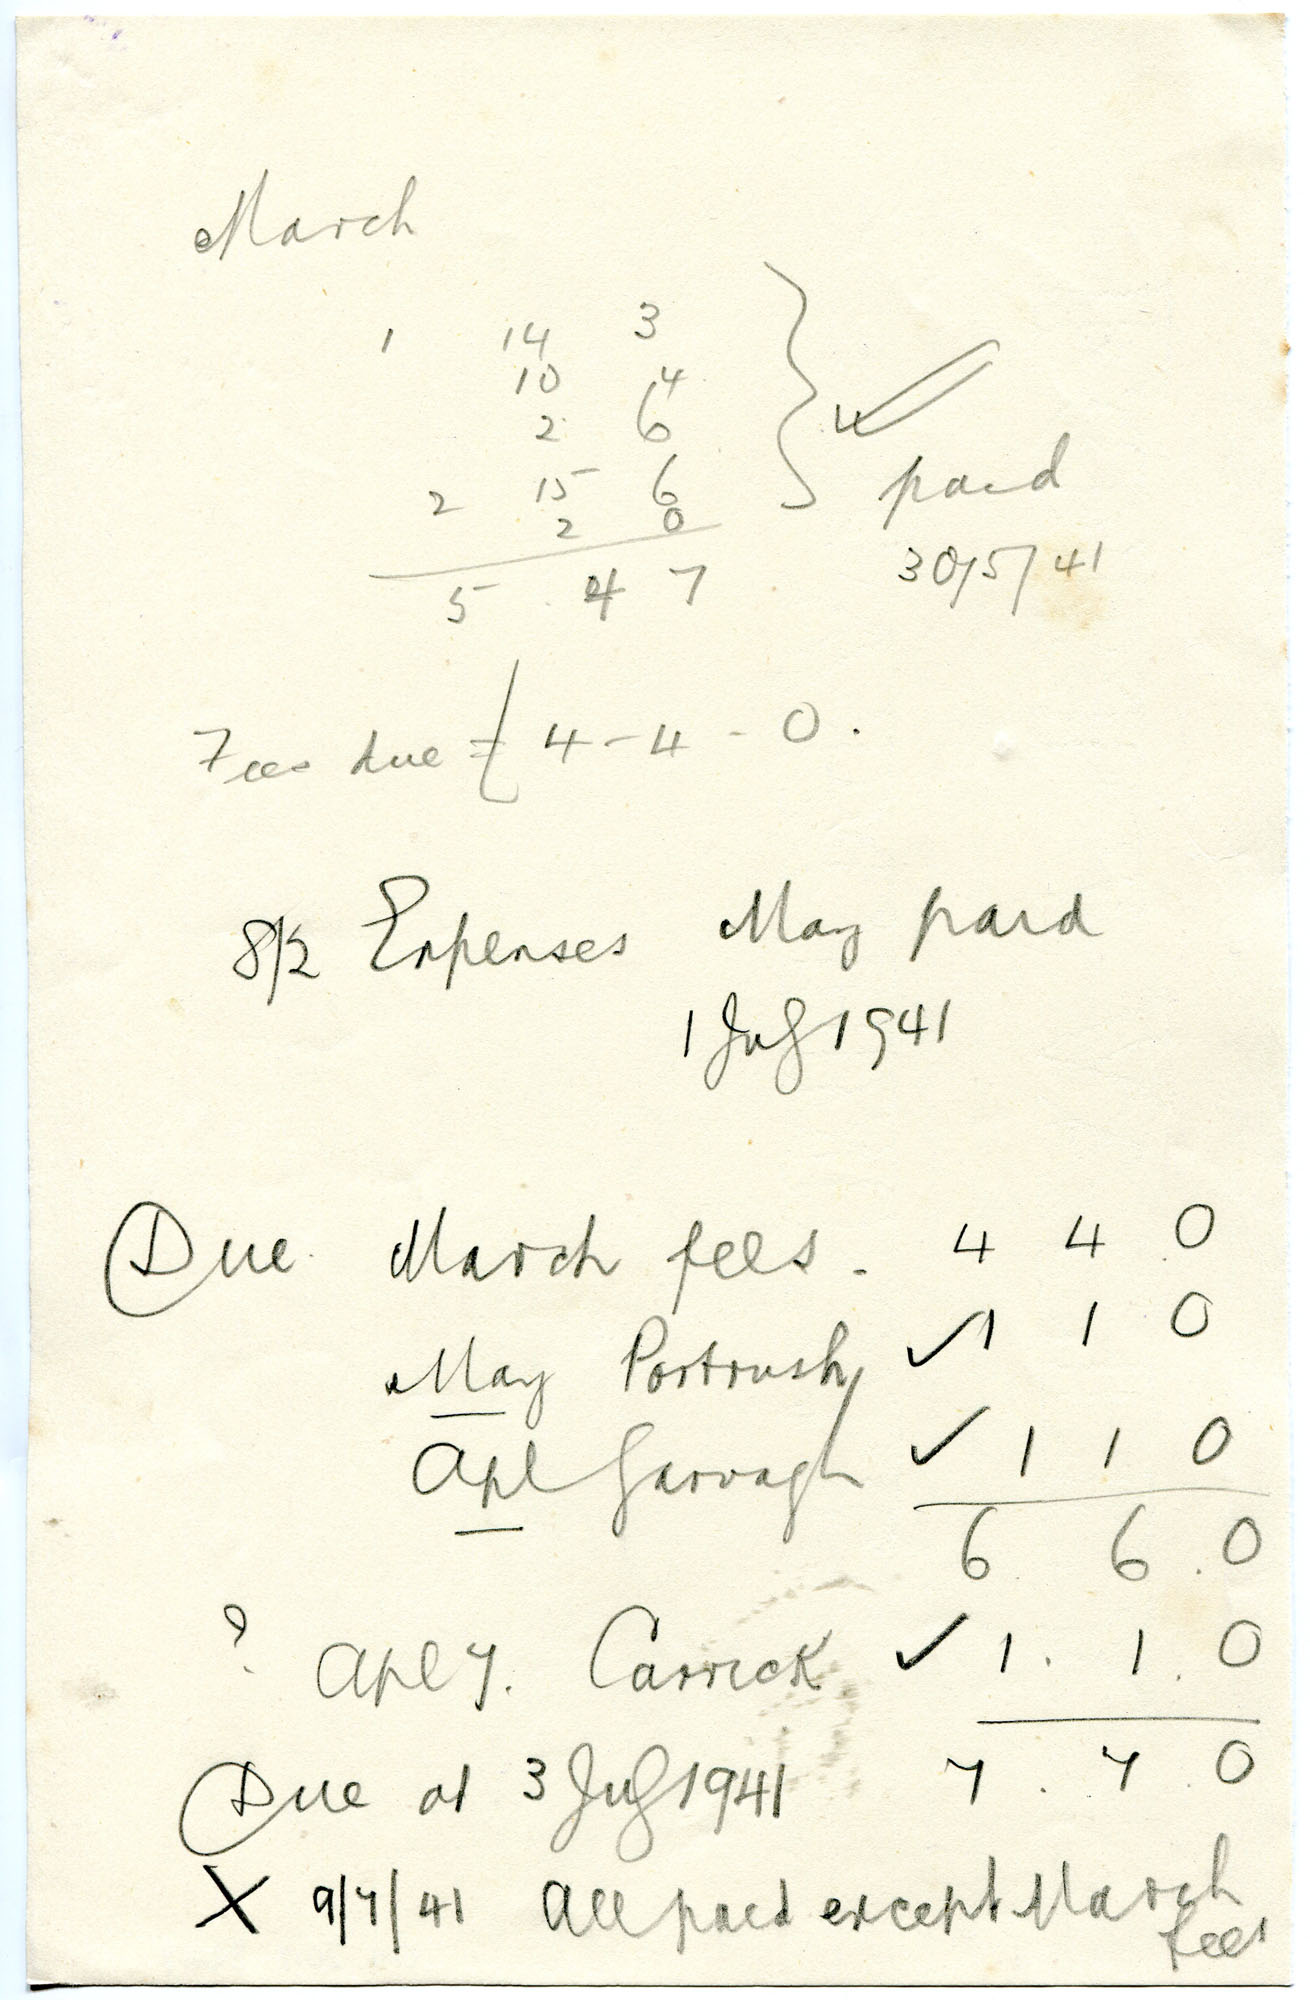 March
1 14 3
10 4
2 6
2 15 6
2 0
5 4 7
paid
30/5/41
Fees due = £ 4 - 4 - 0.
8/2 Expenses May paid
1 July 1941
Due March fees. 4 4 0
May Portrush ✓ 1 1 0
Apl Garvagh ✓ 1 1 0
6 . 6 . 0
? Apl 7. Carrick ✓ 1 . 1 . 0
Due at 3 July 1941 7 . 7 . 0
X 9/7/41 All paid except March
fees